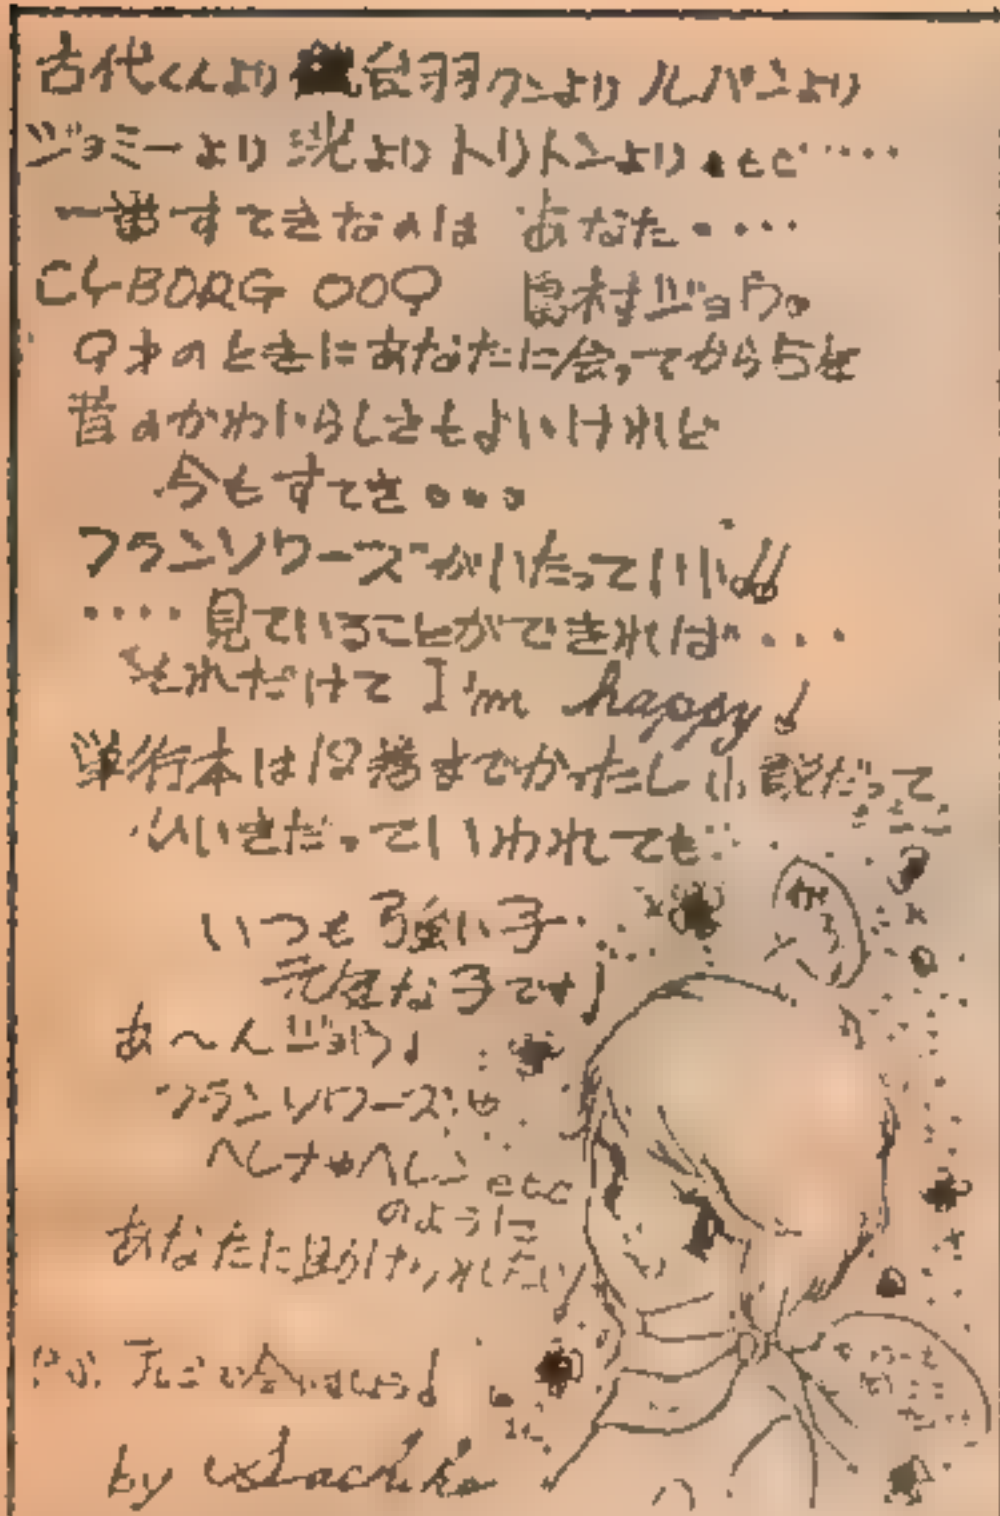 古代くんより 台羽クンより ルパンより
ジョミーより 洸より トリトンより etc‥‥‥
一番すてきなのは あなた‥‥
CYBORG 009 島村ジョウ。
9才のときにあなたに会ってから5年
昔のかわいらしさもよいけれど
今もすてき・・・
フランソワーズがいたっていい!!
‥‥見ていることができれば‥‥
それだけで I'm happy!
単行本は12巻までかったし 小説だって
ひいきだっていわれても
いつも強い子
元気な子です!
あ〜んジョウ!
フランソワーズや
ヘレナやヘレン etc
のように
あなたに
会いましょう!
by